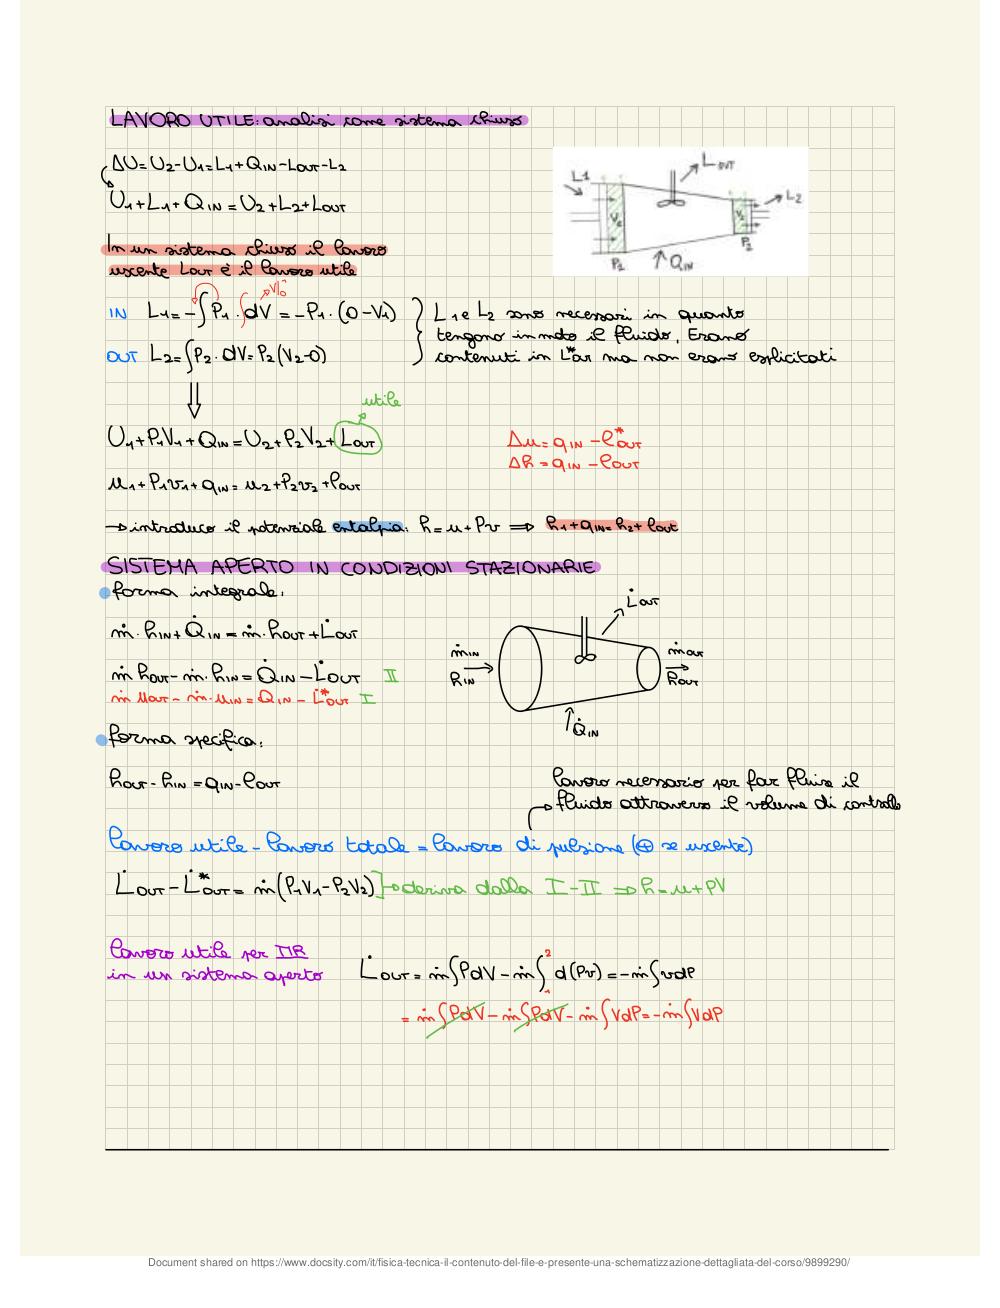 LAVORO UTILE: analisi come sistema chiuso
ΔU = U2 - U1 = L1 + QIN - LOUT - L2
U1 + L1 + QIN = U2 + L2 + LOUT
L1
LOUT
L2
V2
P2
P2
QIN
In un sistema chiuso il lavoro
uscente LOUT è il lavoro utile
IN L1 = -∫P1 · ∫dV = -P1 · (0 - V1)
OUT L2 = ∫P2 · dV = P2(V2 - 0)
L1 e L2 sono necessari in quanto
tengono in moto il fluido. Erano
contenuti in L*OUT ma non erano esplicitati
⇓
utile
U1 + P1V1 + QIN = U2 + P2V2 + LOUT
u1 + P1v1 + qIN = u2 + P2v2 + lOUT
Δu = qIN - l*OUT
Δh = qIN - lOUT
→ introduco il potenziale entalpia: h = u + Pv ⟹ h1 + qIN = h2 + lOUT
SISTEMA APERTO IN CONDIZIONI STAZIONARIE
forma integrale:
ṁ · hIN + Q̇IN = ṁ · hOUT + L̇OUT
ṁ hOUT - ṁ · hIN = Q̇IN - L̇OUT II
ṁ uOUT - ṁ · uIN = Q̇IN - L̇*OUT I
L̇OUT
ṁIN
hIN
ṁOUT
hOUT
Q̇IN
forma specifica:
hOUT - hIN = qIN - lOUT
lavoro necessario per far fluire il
fluido attraverso il volume di controllo
lavoro utile - lavoro totale = lavoro di pulsione (⊕ se uscente)
L̇OUT - L̇*OUT = ṁ(P1V1 - P2V2) → deriva dalla I - II ⟹ h = u + PV
lavoro utile per TIR
in un sistema aperto
L̇OUT = ṁ∫PdV - ṁ∫₁² d(Pv) = -ṁ∫vdP
= ṁ∫PdV - ṁ∫PdV - ṁ∫VdP = -ṁ∫VdP
Document shared on https://www.docsity.com/it/fisica-tecnica-il-contenuto-del-file-e-presente-una-schematizzazione-dettagliata-del-corso/9899290/